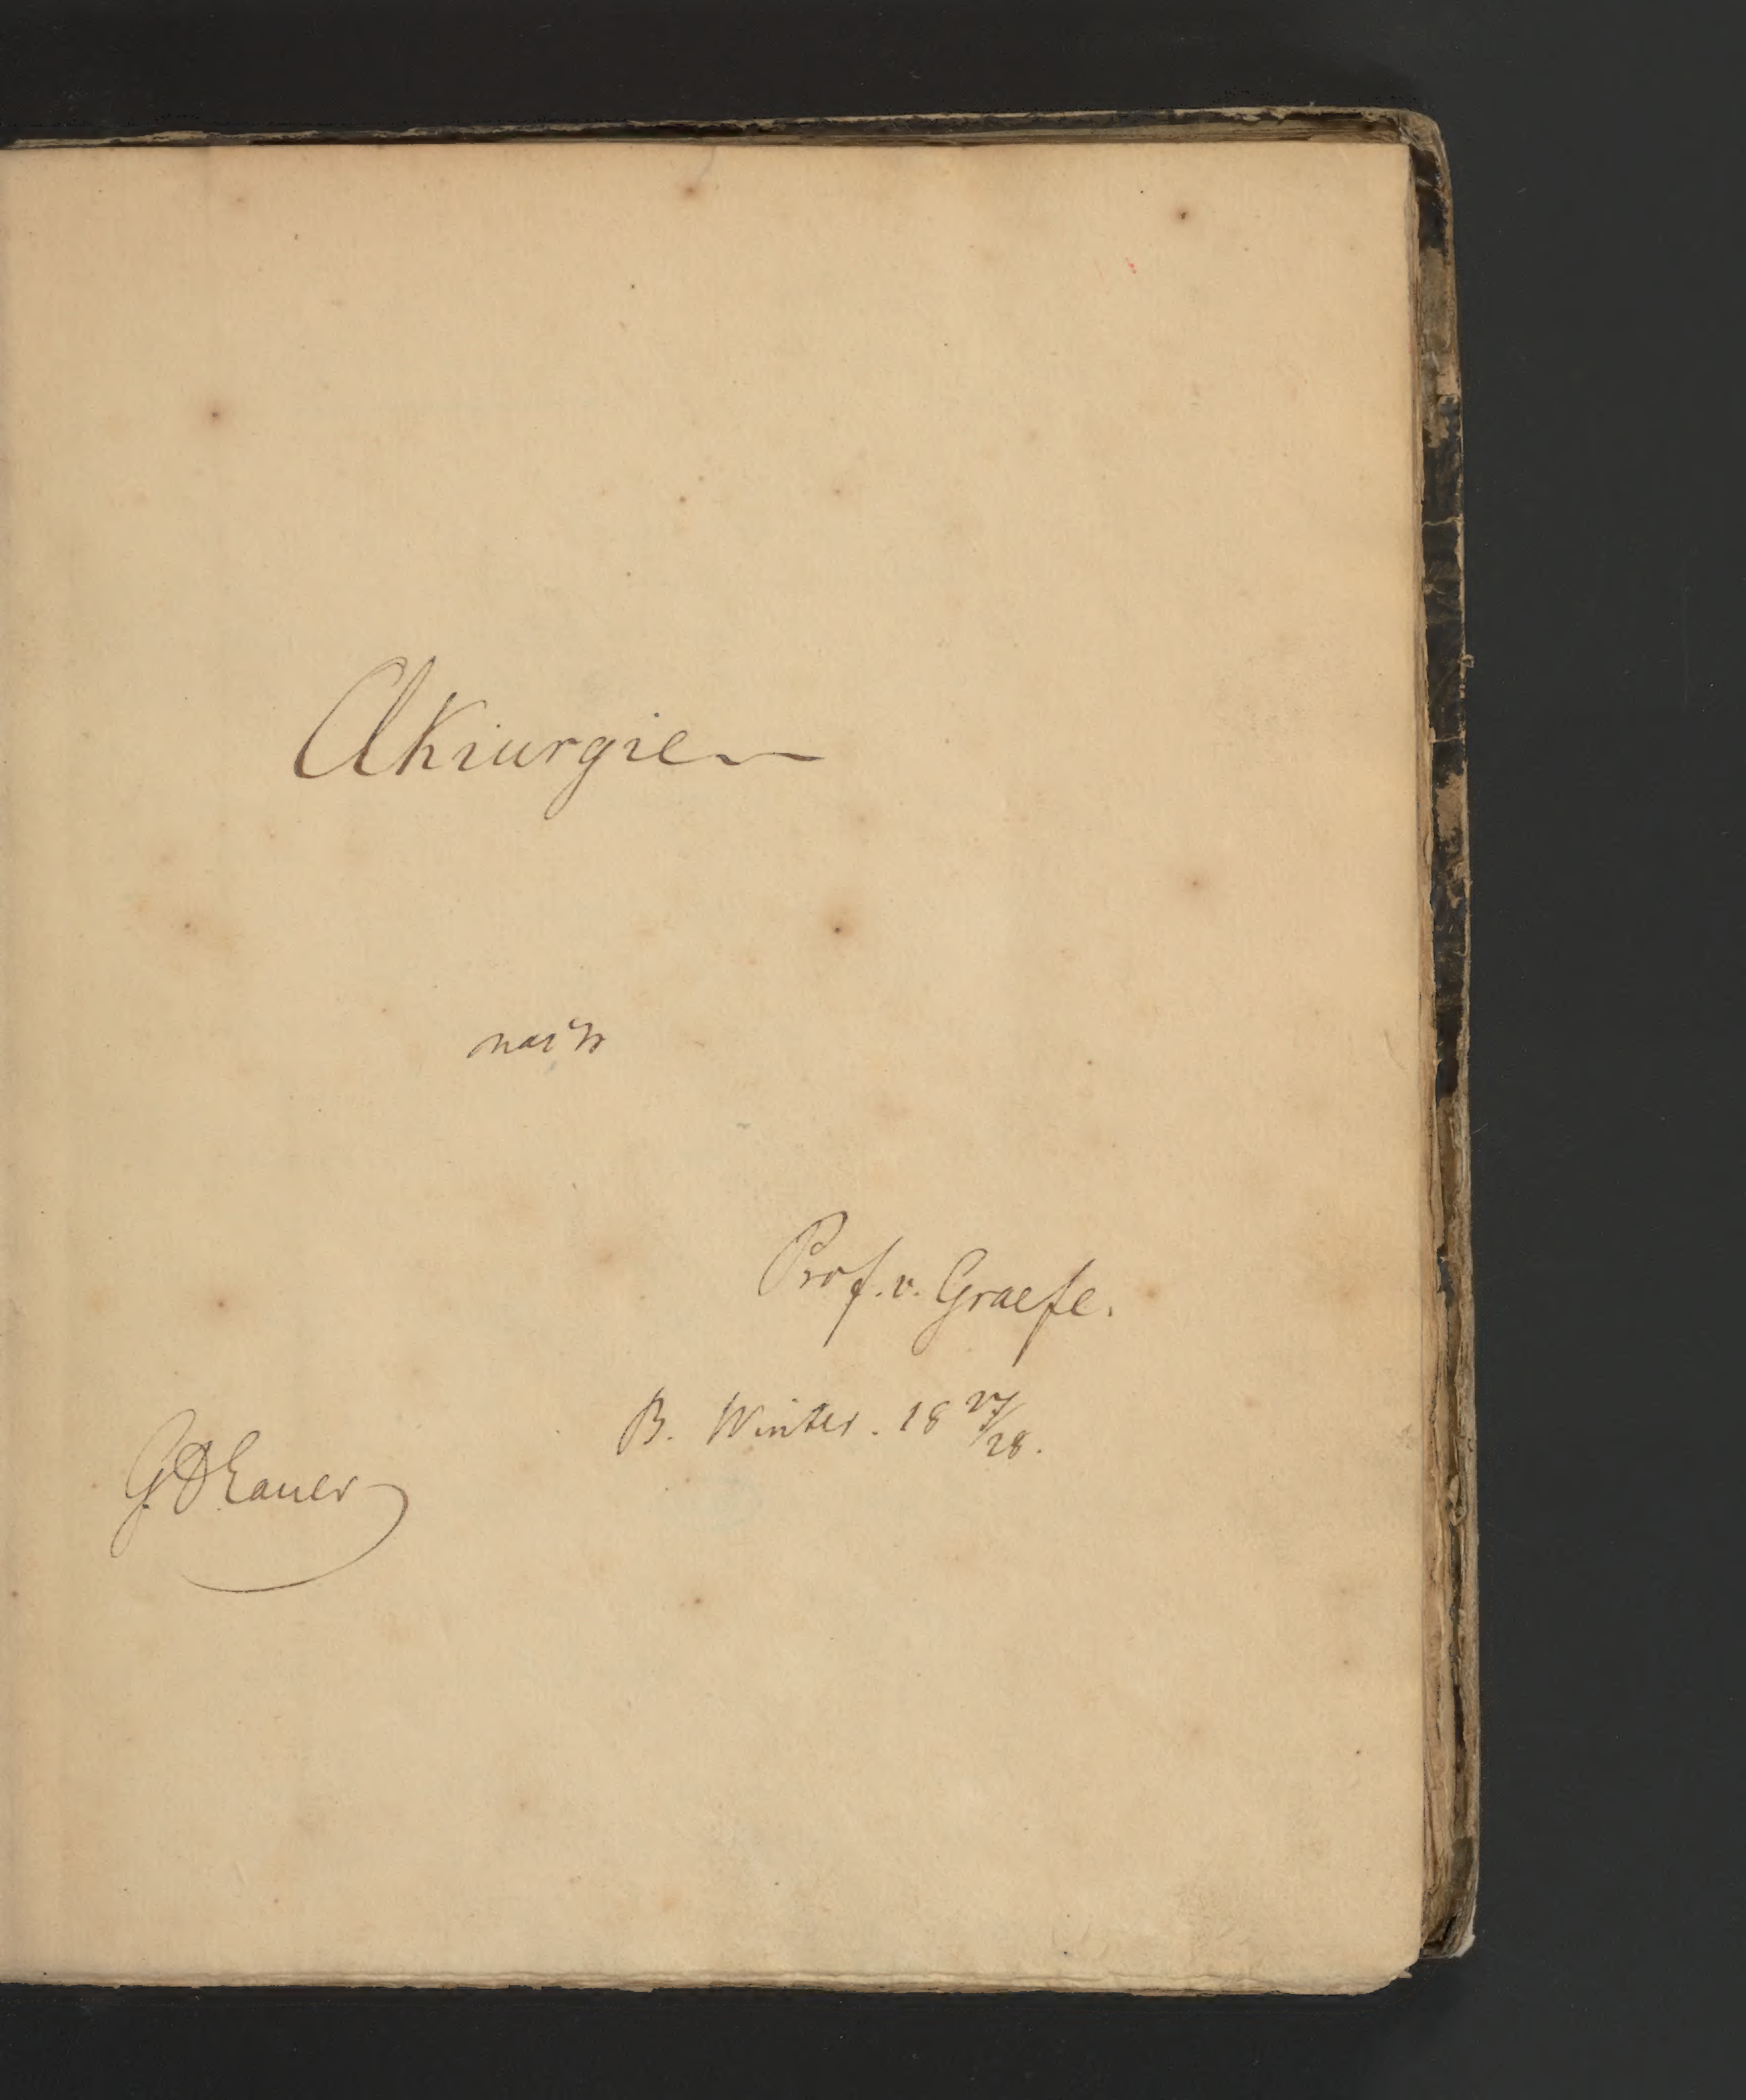 Akiurgie
nach
Prof. v. Graefe.
B. Winter. 18 27/28.